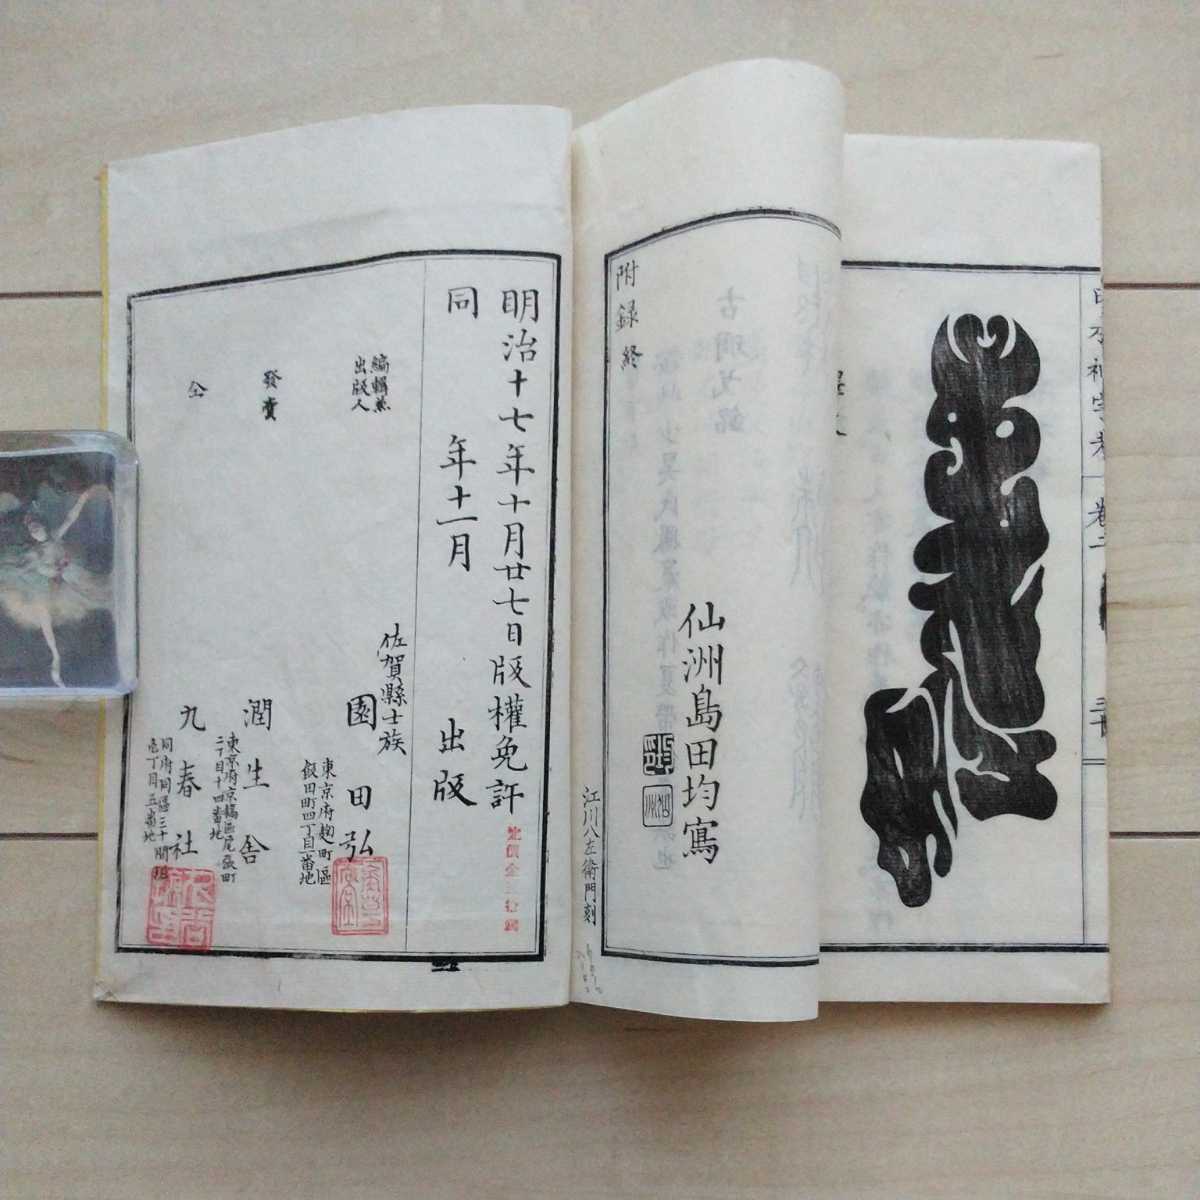 附録終
仙洲島田均寫
江川八左衛門刻
明治十七年十月廿七日版權免許
同年十一月出版
編輯兼
出版人
佐賀縣士族
園田弘
東京府麹町區
飯田町四丁目一番地
發賣
潤生舎
東京府京橋區尾張町
二丁目十四番地
仝
九春社
同府同區三十間堀
壱丁目五番地